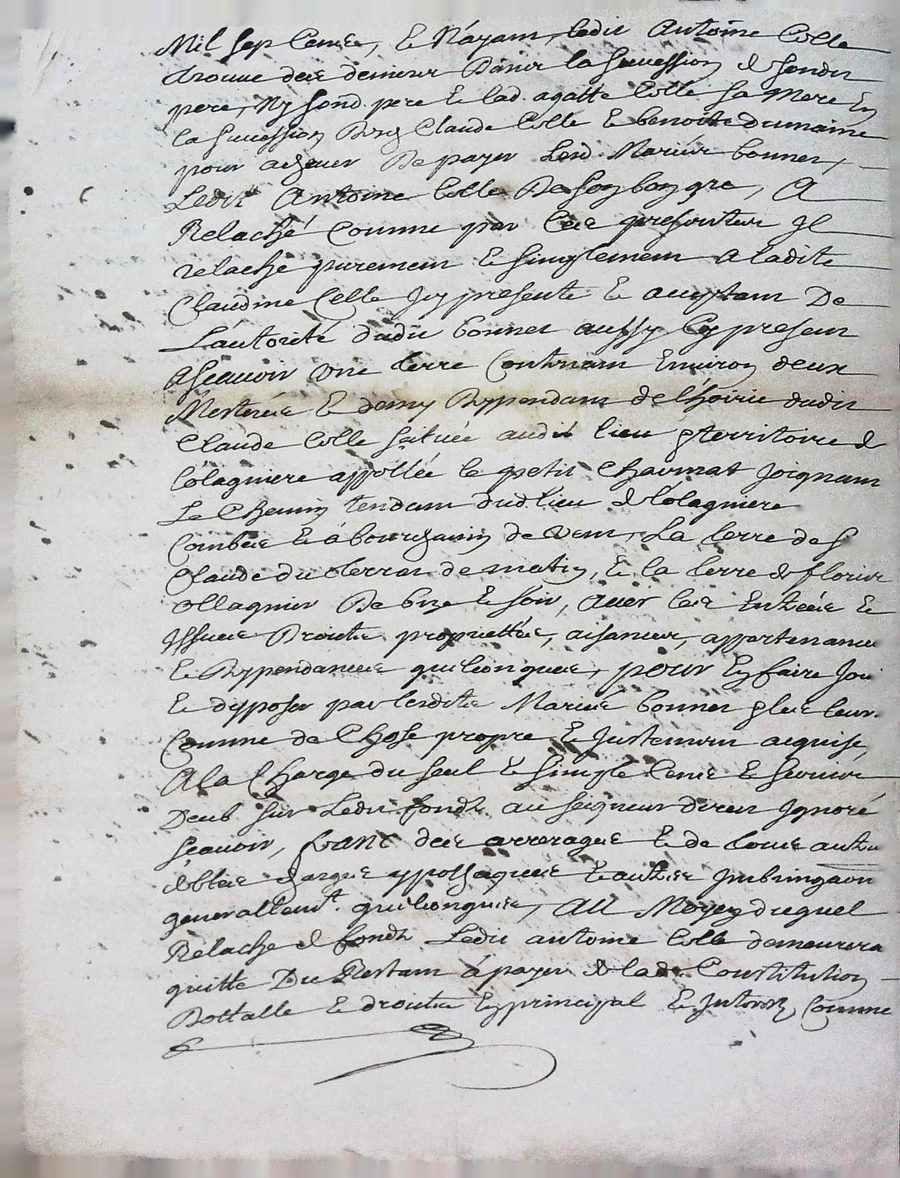 Mil sept Cents, et N'ayant, ledit Antoine Colle
trouvé des deniers dans la Succession de sondit
pere, Ny sond. pere et lad. agatte Colle sa Mere En
la Succession Claude Colle et benoite dumaine
pour achever De payer Lesd. Mariés bonnet,
Ledit Antoine Colle De son bon gre, A
Relaché Comme par Ces presentes Il
relache purement et Simplement a ladite
Claudine Colle Icy presente et acceptant De
L'autorité dudit bonnet aussy Icy present
Ascavoir une terre Contenant Environ deux
Mesterées et demy Deppendant de l'hoirie dudit
Claude Colle Scituée audit lieu et territoire de
Lolagniere appellée le petit Charmat Joignant
Le Chemin tendant dud. lieu de Lolagniere
a bourgauin de vent, La terre de S
Claude du Terrat de matin, et la terre de florie
ollagnier De bize et soir, avec Ses Entrées et
Issues Droits proprietés, aisances, appartenances
et Deppendances quelconques, pour En faire Jouir
et disposer par lesdits Mariés bonnet et les leurs
Comme de Chose propre et Justement acquise,
A la Charge du Seul et Simple Cens et Servis
Deub Sur Ledit fondz au Seigneur direct Ignoré
Scavoir, franc des arrerages et de toute autre
debtes Charges yppotaques et autres
generallemt. quelconques, Au Moyen duquel
Relache de fondz Ledit antoine Colle demeurera
quitte Du Restant à payer de lad. Constitution
Dottalle et droits En principal et Interetz, Comme